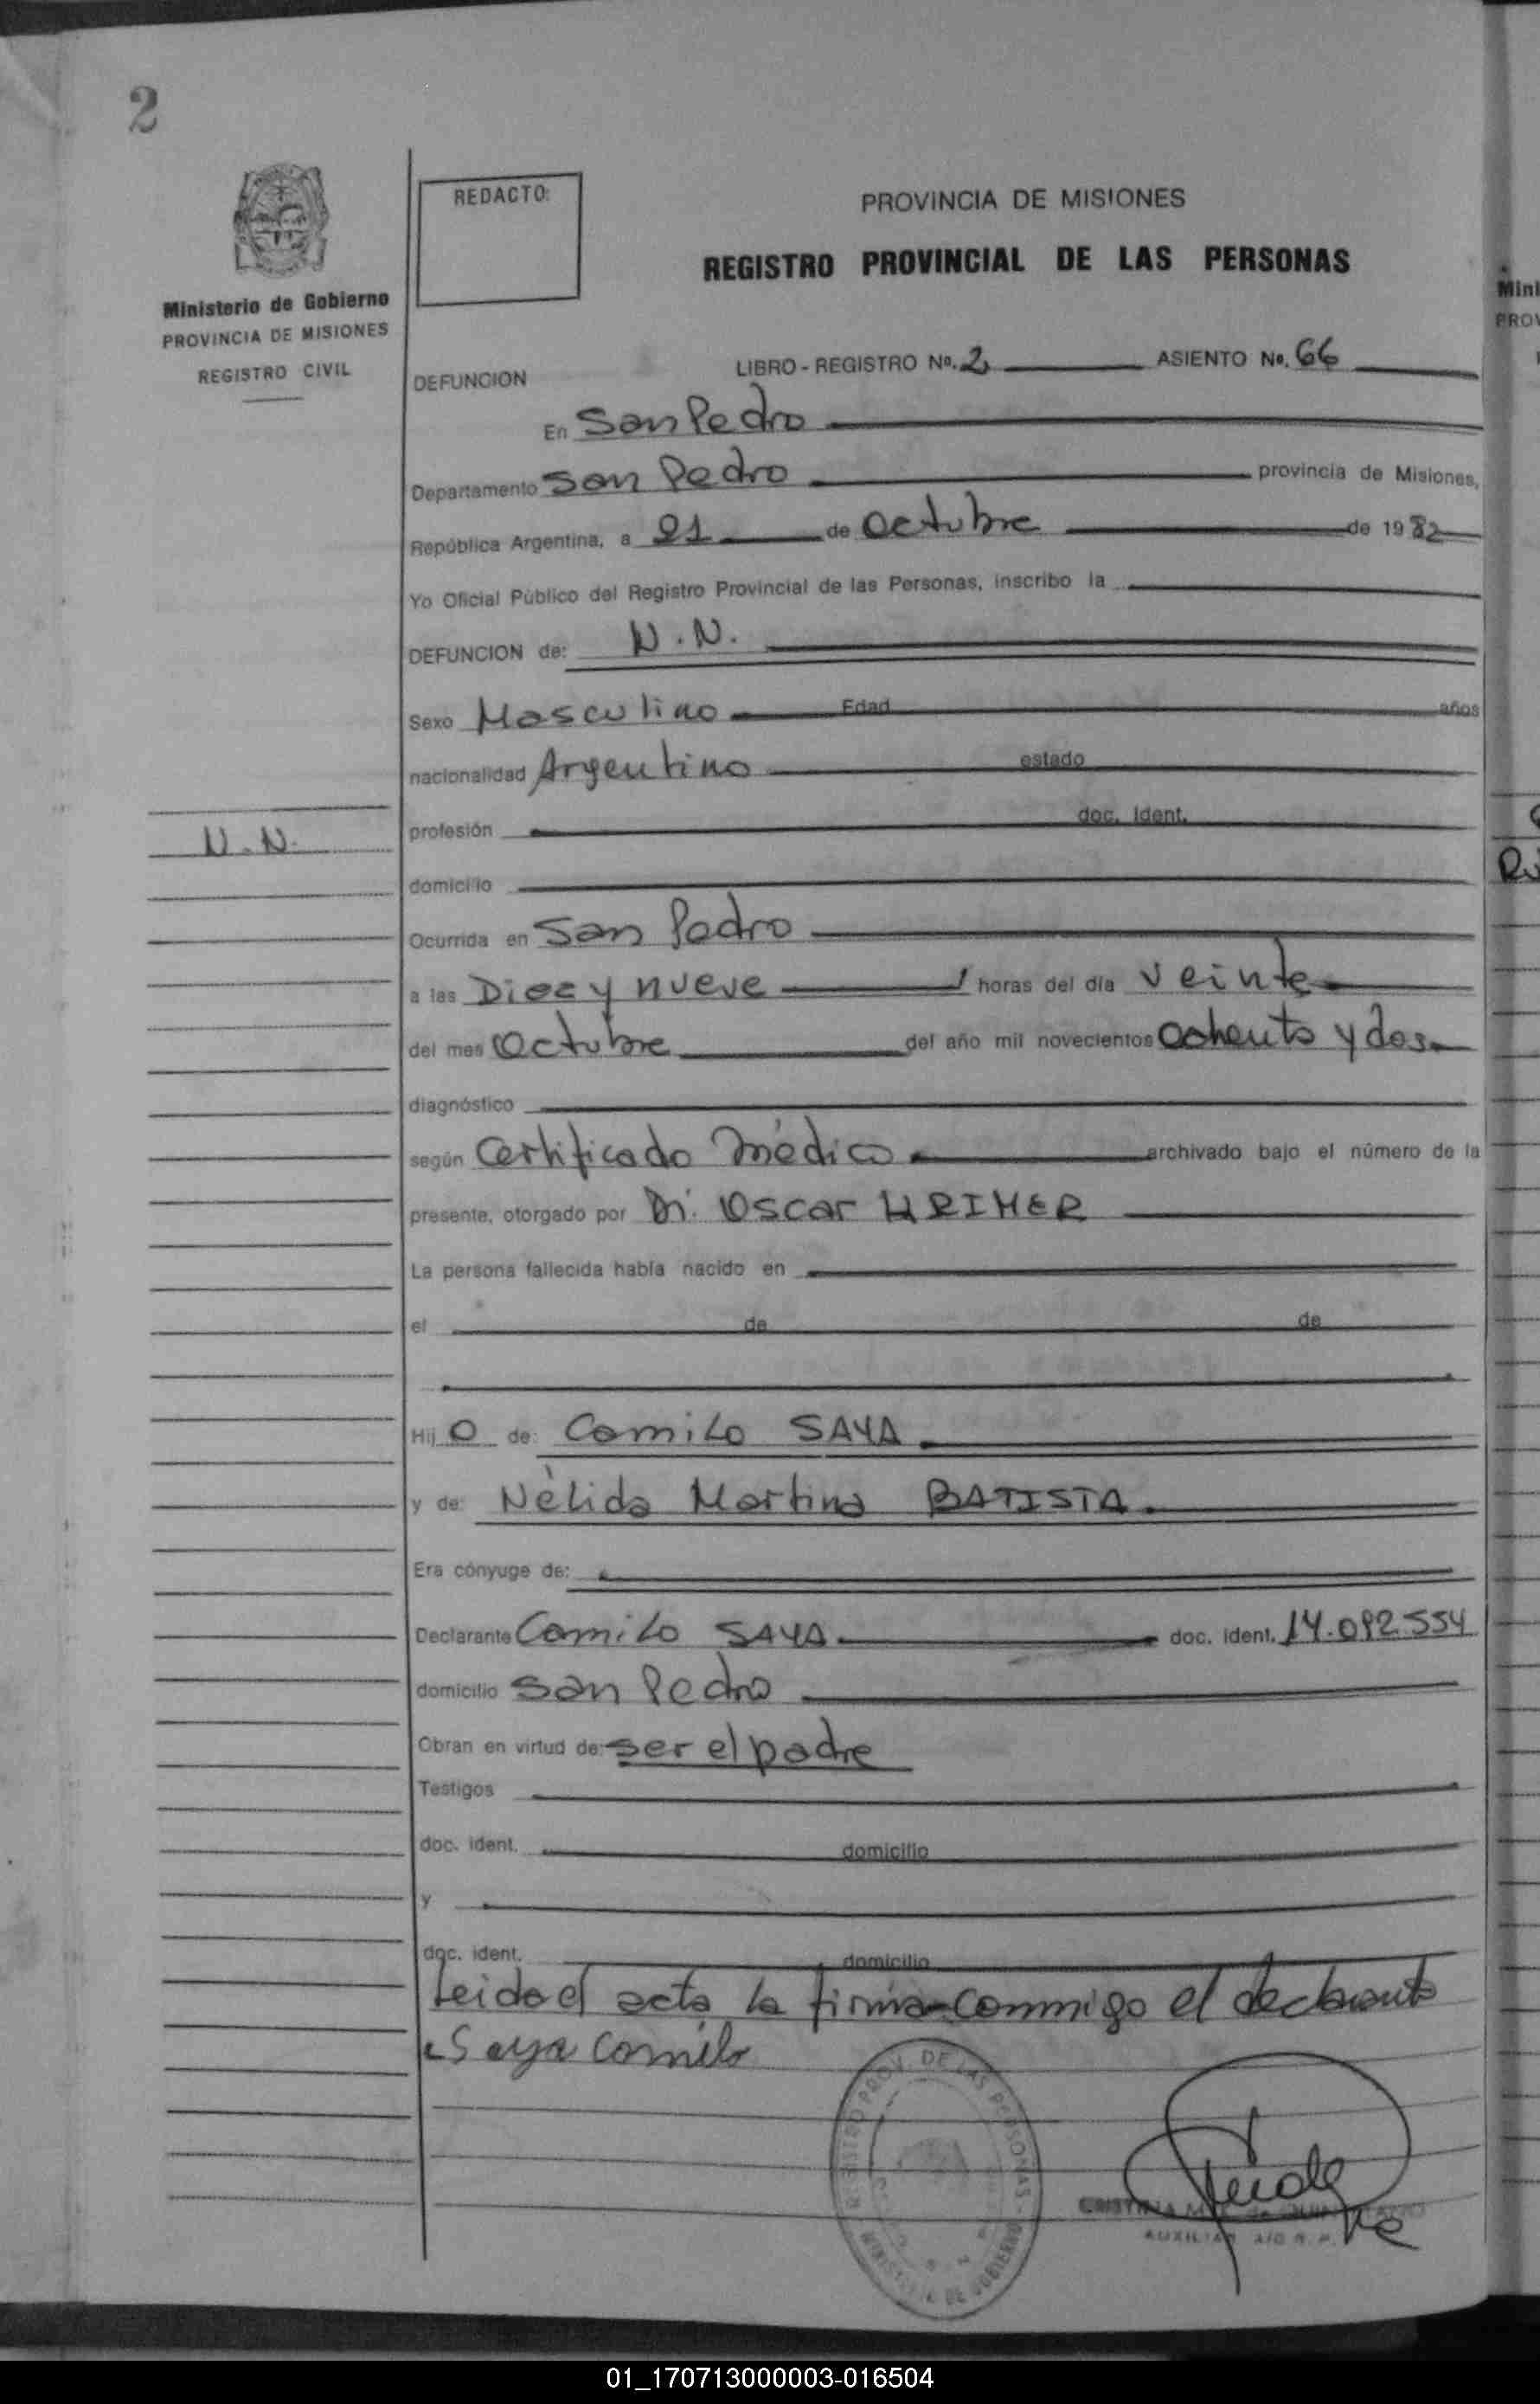 2
REDACTO:
PROVINCIA DE MISIONES
REGISTRO PROVINCIAL DE LAS PERSONAS
Ministerio de Gobierno
PROVINCIA DE MISIONES
REGISTRO CIVIL
DEFUNCION LIBRO - REGISTRO Nº. 2 ASIENTO Nº. 66
En San Pedro
Departamento San Pedro provincia de Misiones,
República Argentina, a 21 de Octubre de 1982
Yo Oficial Público del Registro Provincial de las Personas, inscribo la
DEFUNCION de: N.N.
Sexo Masculino Edad años
nacionalidad Argentino estado
profesión doc. ident.
N.N.
domicilio
Ocurrida en San Pedro
a las Diez y nueve horas del día veinte
del mes Octubre del año mil novecientos Ochenta y dos
diagnóstico
según Certificado Médico archivado bajo el número de la
presente, otorgado por Dr. Oscar KRIMER
La persona fallecida había nacido en
el de de
Hijo de: Camilo SAYA
y de: Nélida Martina BATISTA
Era cónyuge de:
Declarante Camilo SAYA doc. ident. 14.092.554
domicilio San Pedro
Obran en virtud de: ser el padre
Testigos
doc. ident. domicilio
y
doc. ident. domicilio
Leida el acta la firma conmmigo el declarante
Saya Camilo
REGISTRO PROV. DE LAS PERSONAS - MINISTERIO DE GOBIERNO
CRISTINA
AUXILIAR
Mini
PROV
01_170713000003-016504